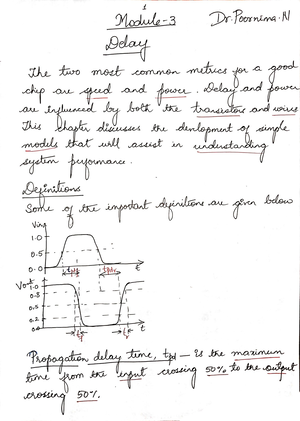 1
Module-3
Dr. Poornima.N
Delay
The two most common metrics for a good
chip are speed and power. Delay and power
are influenced by both the transistors and wires
This chapter discusses the development of simple
models that will assist in understanding
system performance.
Definitions
Some of the important definitions are given below
Vin
1.0
0.5
0.0
t
Vout
1.0
0.8
0.5
0.2
0.0
tf
tr
t
Propagation delay time, tpd — Is the maximum
time from the input crossing 50% to the output
crossing 50%.